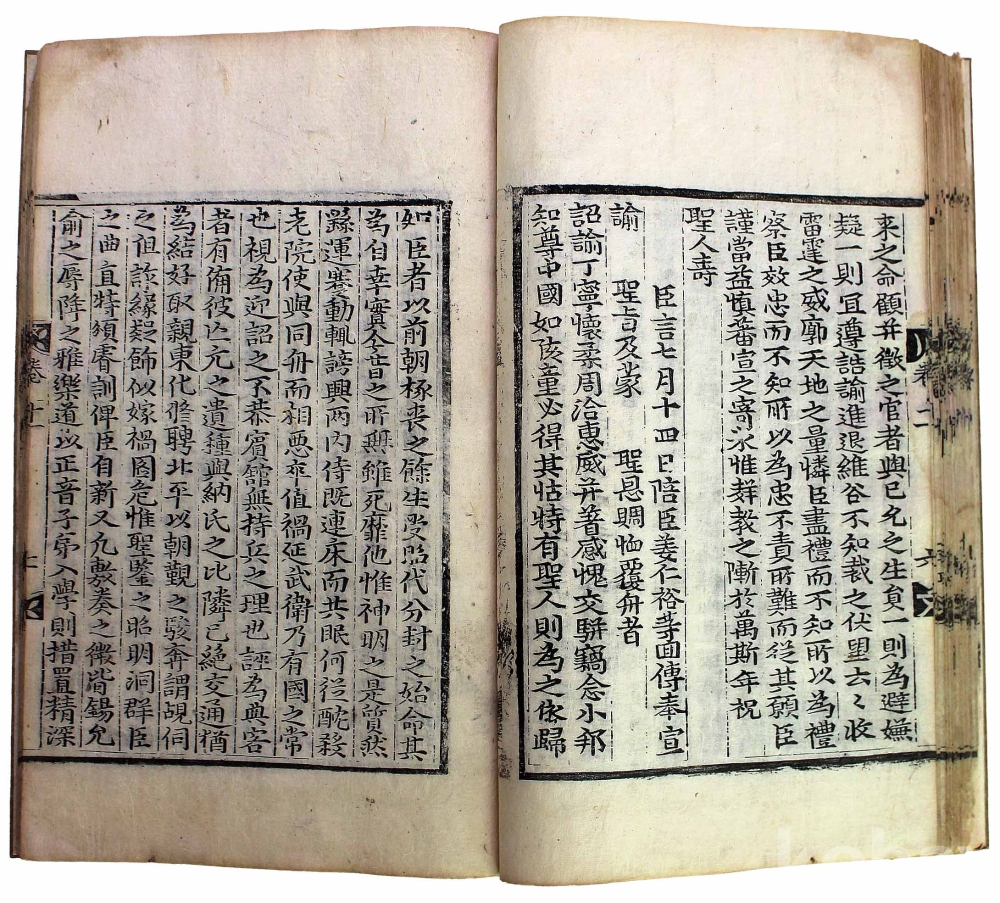 來之命顧并徵之官者與已允之生貟一則為避嫌
疑一則宜遵誥諭進退維谷不知裁之伏望云〻收
雷霆之威廓天地之量憐臣盡禮而不知所以為禮
察臣效忠而不知所以為忠不責所難而從其願臣
謹當益慎蕃宣之寄永惟群教之漸於萬斯年祝
聖人壽
臣言七月十四日陪臣姜仁裕等面傳奉宣
諭 聖旨及蒙 聖恩賙恤覆舟者
詔諭丁寧懷柔周洽惠威并著感愧交騈竊念小邦
知尊中國如孩童必得其怙恃有聖人則為之依歸
如臣者以前朝椓喪之餘生受昭代分封之始命其
為自幸實今昔之所無雖死靡他惟神明之是質然
繇運蹇動輒謗興兩內侍旣連床而共眠何從酖殺
老院使與同舟而相悪卒值禍延武衛乃有國之常
也視為迎詔之不恭賓館無持兵之理也誣為典客
者有俻彼亡元之遺種與納氏之比隣已絶交通猶
為結好取親東化修聘北平以朝覲之駿奔謂覘伺
之徂詐緣疑飾似嫁禍圖危惟聖鑒之昭明洞群臣
之曲直特頒睿訓俾臣自新又允敷奏之微皆錫允
俞之辱降之雅樂道以正音子弟入學則措置精深